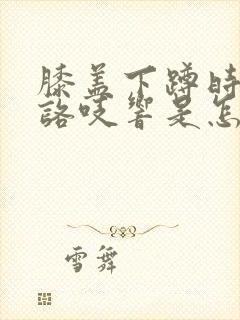 膝盖下蹲时
咯吱響是怎
雪舞